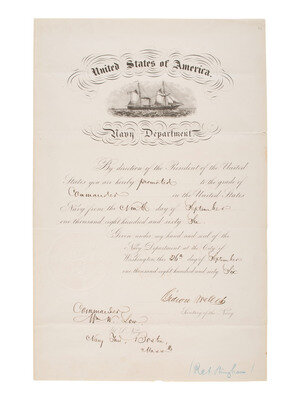 United States of America.
Navy Department.
By direction of the President of the United
States you are hereby promoted to the grade of
Commander in the United States
Navy from the day of September
one thousand eight hundred and sixty Six.
Given under my hand and seal of the
Navy Department at the City of
Washington this 26th day of September
one thousand eight hundred and sixty Six
Gideon Welles
Secretary of the Navy
Commander
Wm.
Navy Boston
Mass